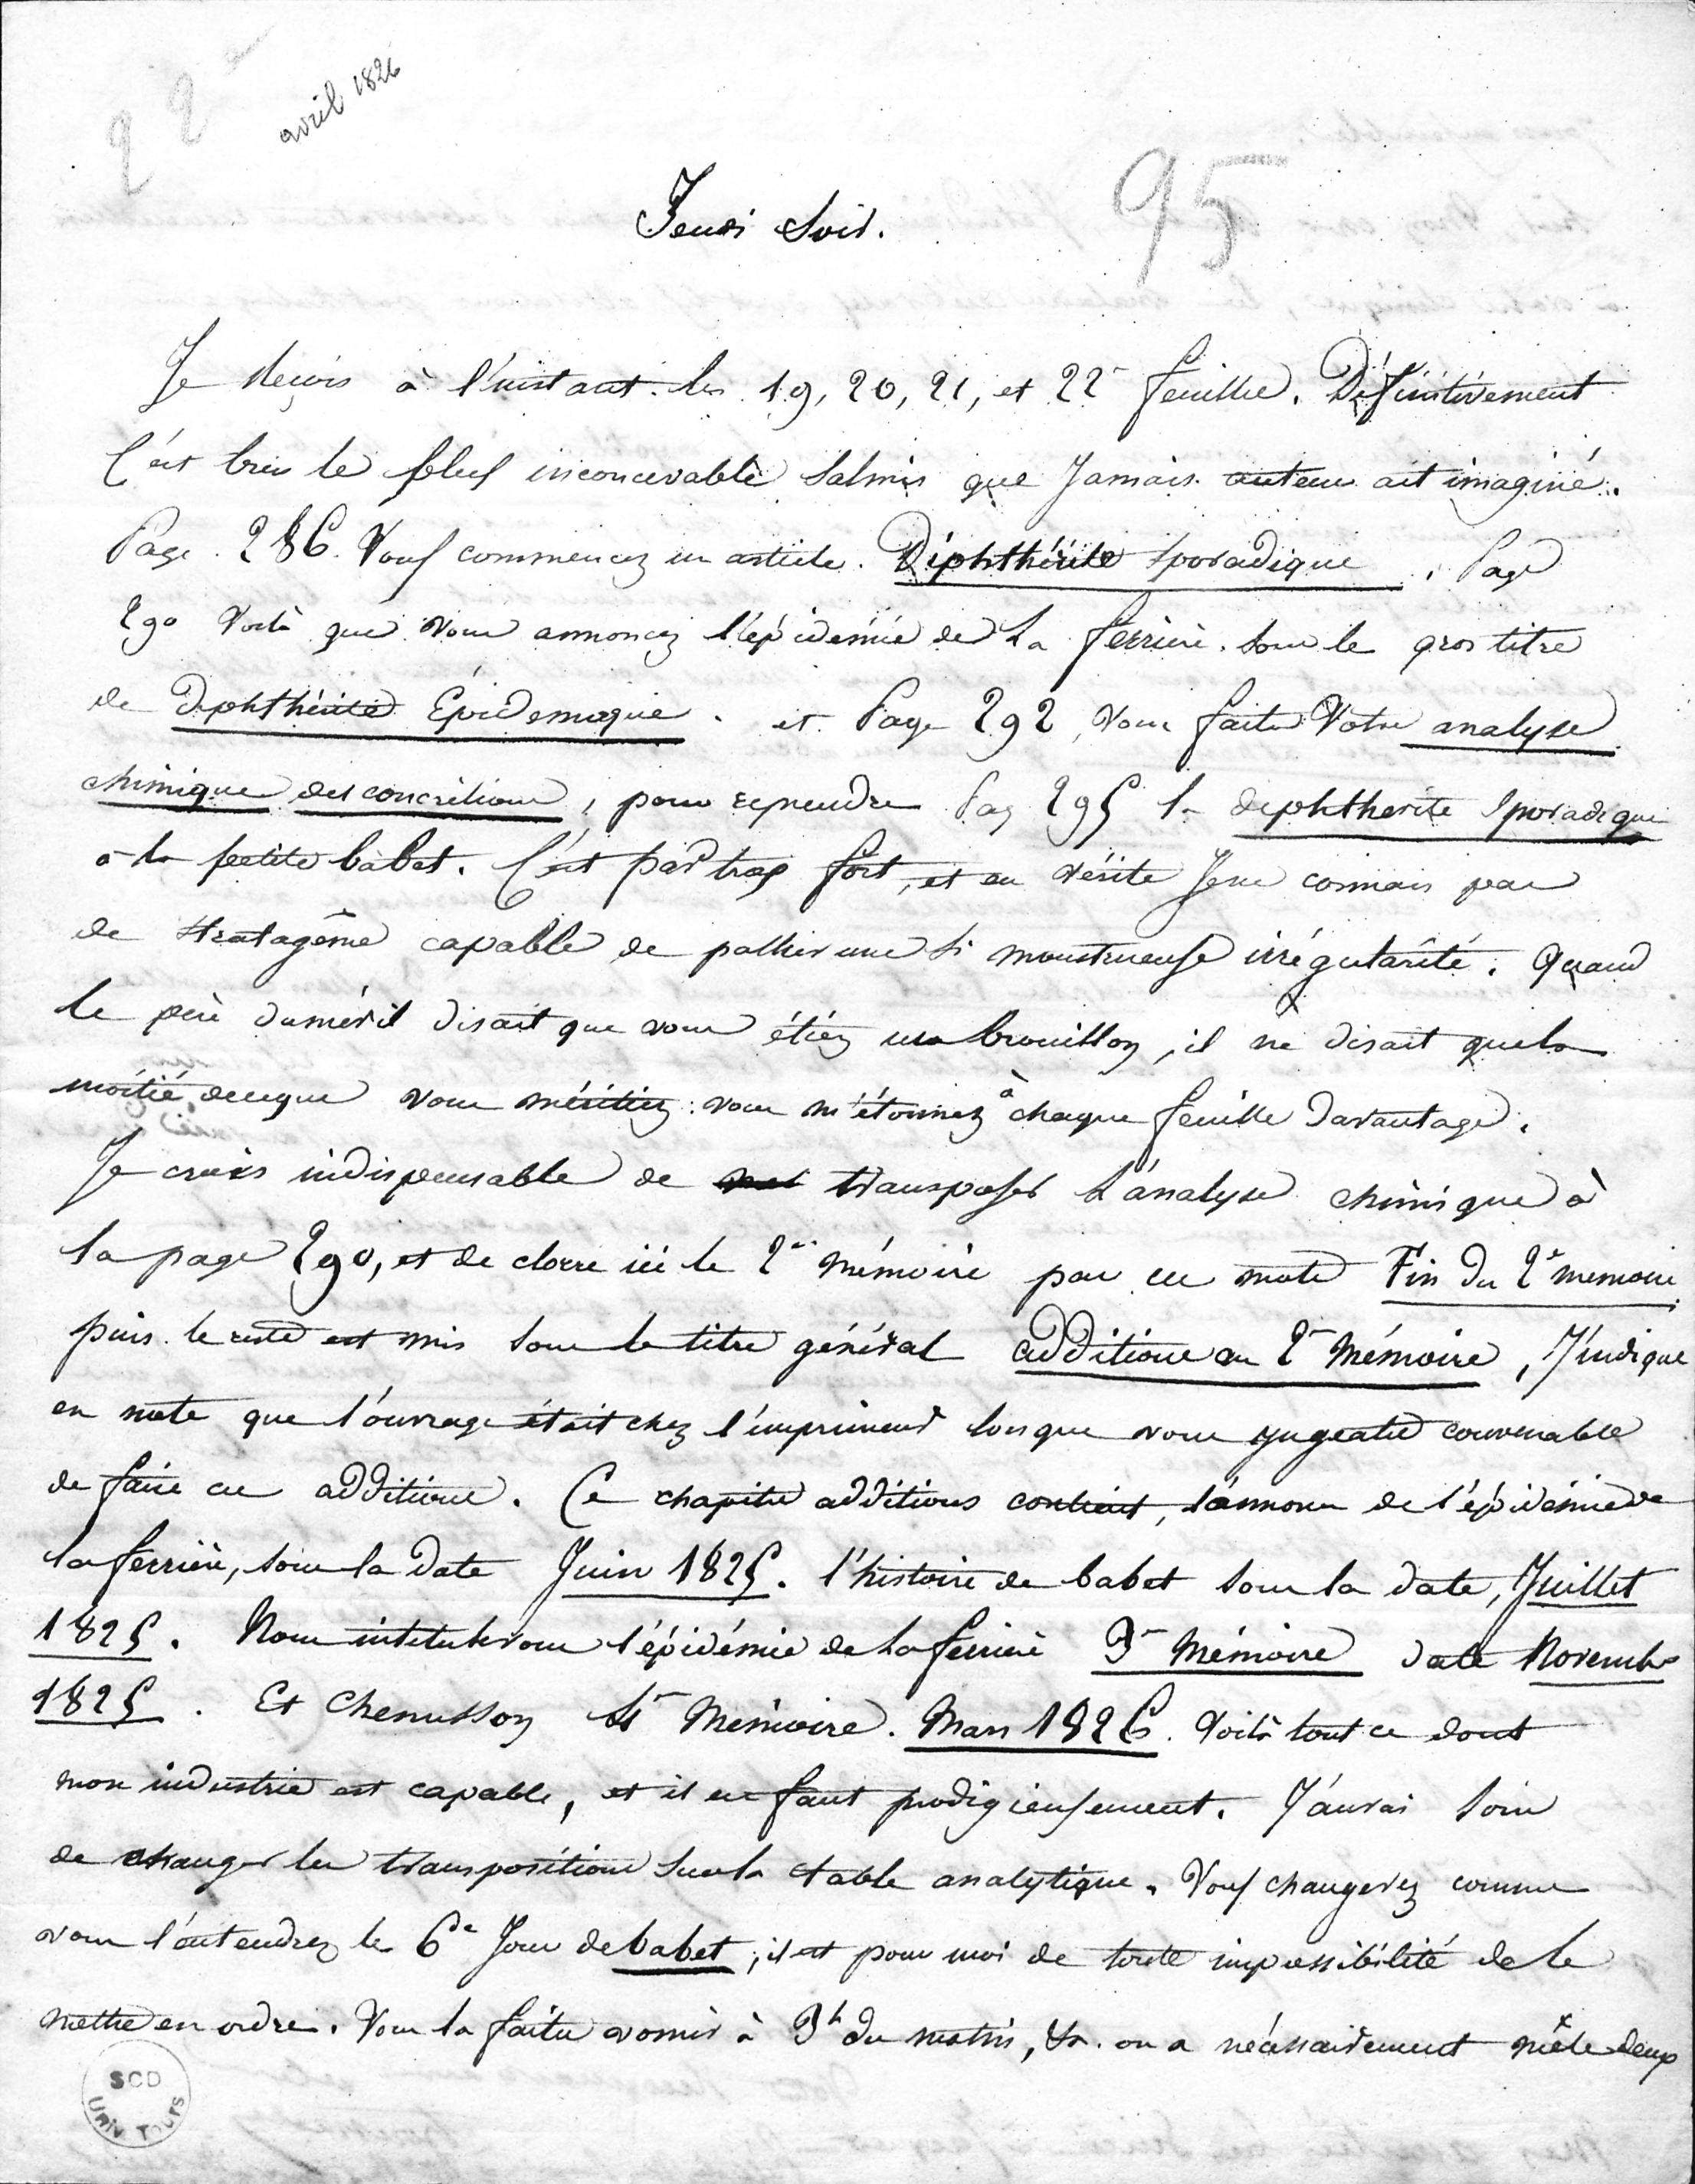 22e
avril 1826
95
Jeudi soir.
Je reçois à l'instant les 19, 20, 21, et 22e feuille. Définitivement
C'est bien le plus inconcevable salmis que Jamais auteur ait imaginé.
Page 286. Vous commencez un article. Diphthérite sporadique, Page
290 Voilà que vous annoncez l'épidémie de La ferrière sous le gros titre
de Diphthérite Épidémique. et Page 292, vous faites Votre analyse
chimique des concrétions, pour reprendre Pag 295 la diphtherite sporadique
à la petite babet. C'est par trop fort, et en vérité Je ne connais pas
de stratagême capable de pallier une si monstrueuse irrégularité. Quand
le père duméril disait que vous étiez un brouillon, il ne disait que la
moitié de ce que vous méritiez : vous m'étonnez à chaque feuille Davantage.
Je crois indispensable de transposer L'analyse chimique à
la page 290, et de clorre ici le 2e mémoire par ces mots Fin du 2e memoire
puis le reste est mis sous le titre général additions au 2e Mémoire, J'indique
en note que l'ouvrage était chez l'imprimeur lorsque vous jugeates convenable
de faire ces additions. Ce chapitre additions contient, l'annonce de l'épidémie de
la ferrière, sous la date Juin 1825. l'histoire de babet sous la date, Juillet
1825. Nous intitulerons l'épidémie de La ferrière 3e Mémoire date Novembre
1825. Et Chenusson 4e Mémoire. Mars 1826. Voilà tout ce dont
mon industrie est capable, et il en faut prodigieusement. J'aurai soin
de changer les transpositions sur la table analytique. Vous changerez comme
vous l'entendrez le 6e Jour de babet, il est pour moi de toute impossibilité de le
mettre en ordre. Vous la faites vomir à 3h du matin, &c. on a nécessairement mêlé deux
SCD
Univ Tours